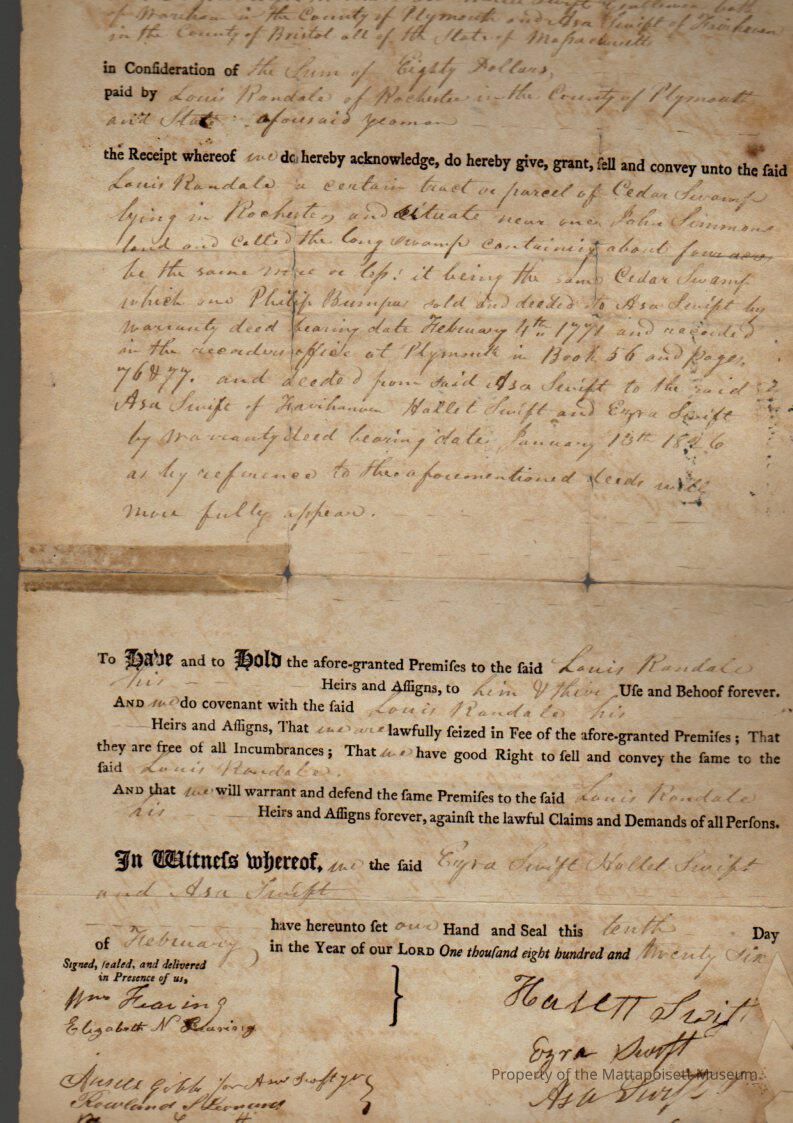 of Wareham in the County of Plymouth and Asa Swift of Fairhaven
in the County of Bristol all of the State of Massachusetts
in Conſideration of the Sum of Eighty Dollars,
paid by Louis Randale of Rochester in the County of Plymouth
and State aforesaid yeoman
the Receipt whereof we do hereby acknowledge, do hereby give, grant, ſell and convey unto the ſaid
Louis Randale a certain tract or parcel of Cedar Swamp
lying in Rochester, and situate near one John Simmons
land and called the long swamp containing about four acres
be the same more or less: it being the same Cedar Swamp
which one Philip Bumpus sold and deeded to Asa Swift by
warranty deed bearing date February 4th 1771 and recorded
in the recorders office at Plymouth in Book 56 and pages
76&77. and deeded from said Asa Swift to the said
Asa Swift of Fairhaven Hallet Swift and Ezra Swift
by warranty deed bearing date January 13th 1826
as by reference to the aforementioned deeds will
more fully appear.
To Have and to Hold the afore-granted Premiſes to the ſaid Louis Randale
his Heirs and Aſſigns, to him & their Uſe and Behoof forever.
AND we do covenant with the ſaid Louis Randale his
Heirs and Aſſigns, That we are lawfully ſeized in Fee of the afore-granted Premiſes; That
they are free of all Incumbrances; That we have good Right to ſell and convey the ſame to the
ſaid Louis Randale.
AND that we will warrant and defend the ſame Premiſes to the ſaid Louis Randale
his Heirs and Aſſigns forever, againſt the lawful Claims and Demands of all Perſons.
In Witneſs whereof, we the ſaid Ezra Swift Hallet Swift
and Asa Swift
have hereunto ſet our Hand and Seal this tenth Day
of February in the Year of our LORD One thouſand eight hundred and twenty Six
Signed, ſealed, and delivered
in Preſence of us,
Wm Fearing
Elizabeth N Fearing
Hasett Swift
Ezra Swift
Property of the Mattapoisett Museum.
Asa Swift
Gibbs for Asa Swift
Rowland